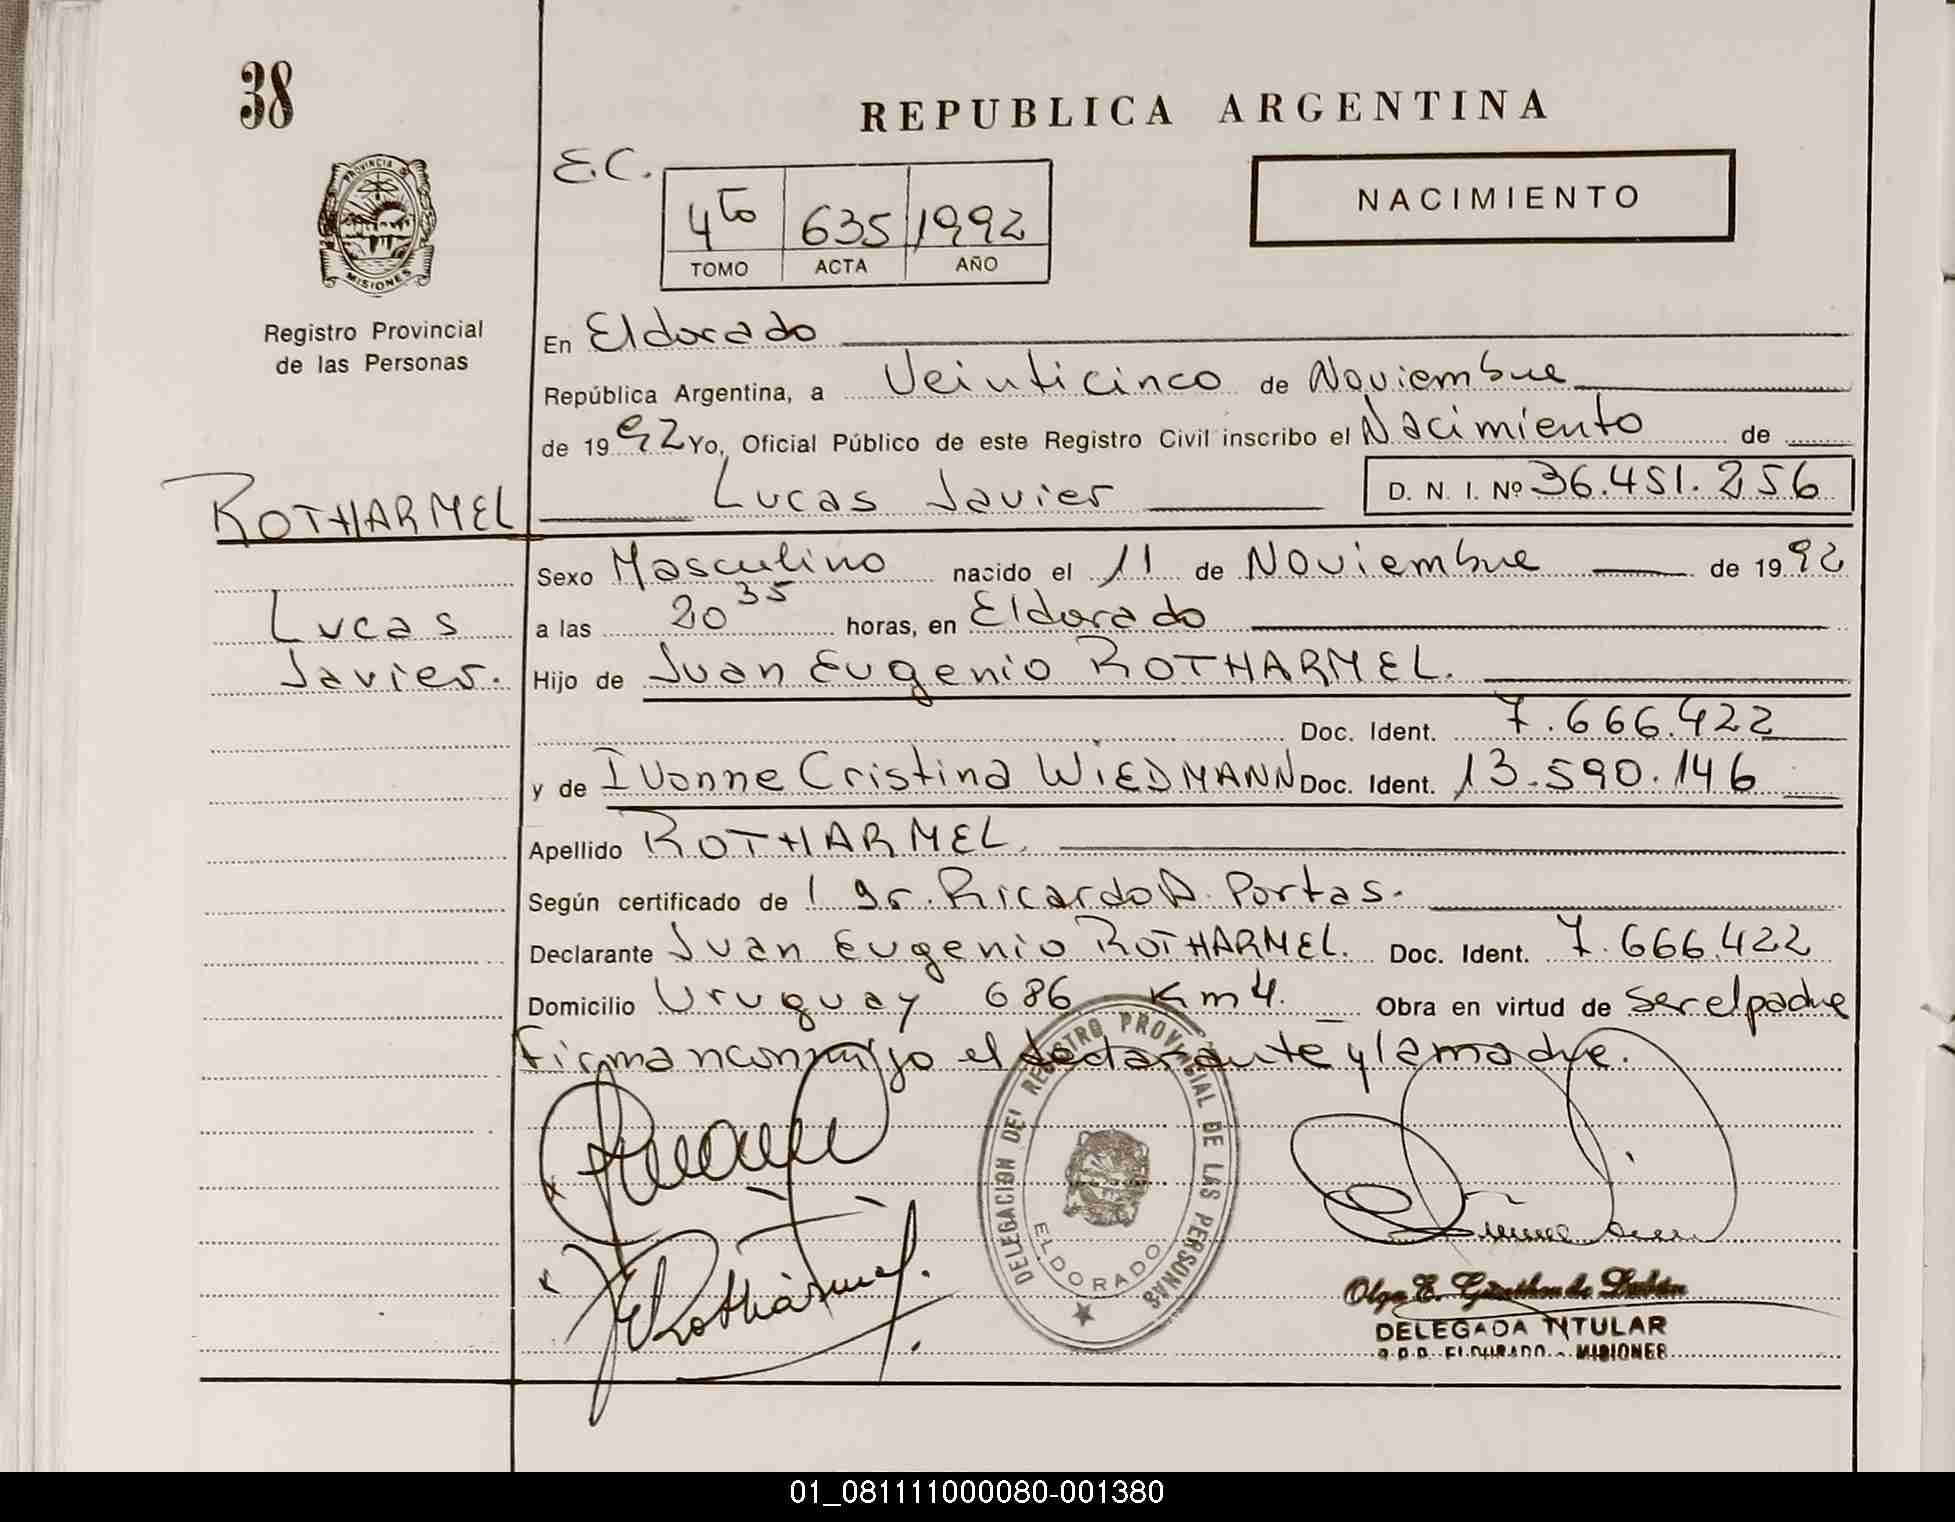 38
REPUBLICA ARGENTINA
E.C.
4to 635 1992
TOMO ACTA AÑO
NACIMIENTO
PROVINCIA DE
MISIONES
Registro Provincial
de las Personas
En Eldorado
República Argentina, a Veinticinco de Noviembre
de 1992 Yo, Oficial Público de este Registro Civil inscribo el Nacimiento de
Lucas Javier D. N. I. Nº 36.451.256
ROTHARMEL
Lucas
Javier.
Sexo Masculino nacido el 11 de Noviembre de 1992
a las 20 35 horas, en Eldorado
Hijo de Juan Eugenio ROTHARMEL.
Doc. Ident. 7.666.422
y de Ivonne Cristina WIEDMANN Doc. Ident. 13.590.146
Apellido ROTHARMEL
Según certificado de Ricardo A. Portas.
Declarante Juan Eugenio ROTHARMEL. Doc. Ident. 7.666.422
Domicilio Uruguay 686 Km 4. Obra en virtud de ser el padre
Firman conmigo el declarante y la madre.
DELEGACION DEL REGISTRO PROVINCIAL DE LAS PERSONAS
ELDORADO
JERotharmel.
Olga E.
DELEGADA TITULAR
ELDORADO - MISIONES
01_081111000080-001380